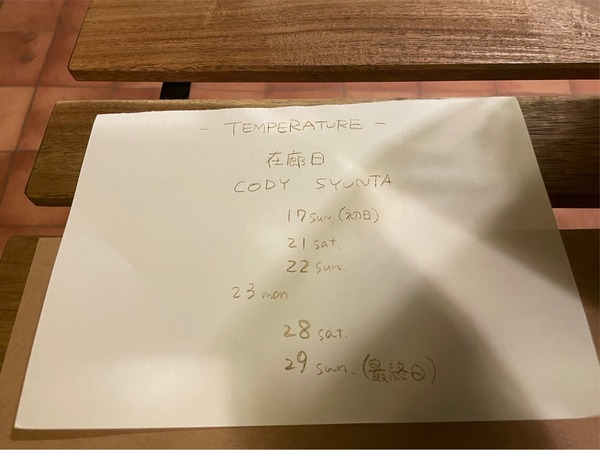 - TEMPERATURE -
在廊日
CODY SYUNTA
17 sun. (初日)
21 sat.
22 sun.
23 mon
28 sat.
29 sun. (最終日)